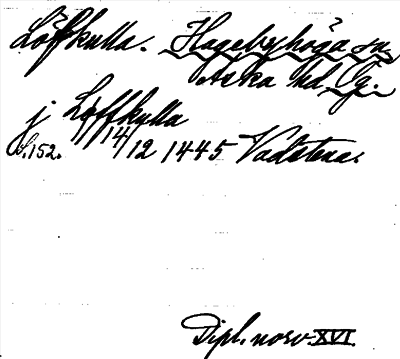 Löfkulla. Hagebyhöga sn
Aska hd, Ög.
j Löffkulla
S. 152. 14/12 1445 Vadstena.
Dipl. norv. XVI.